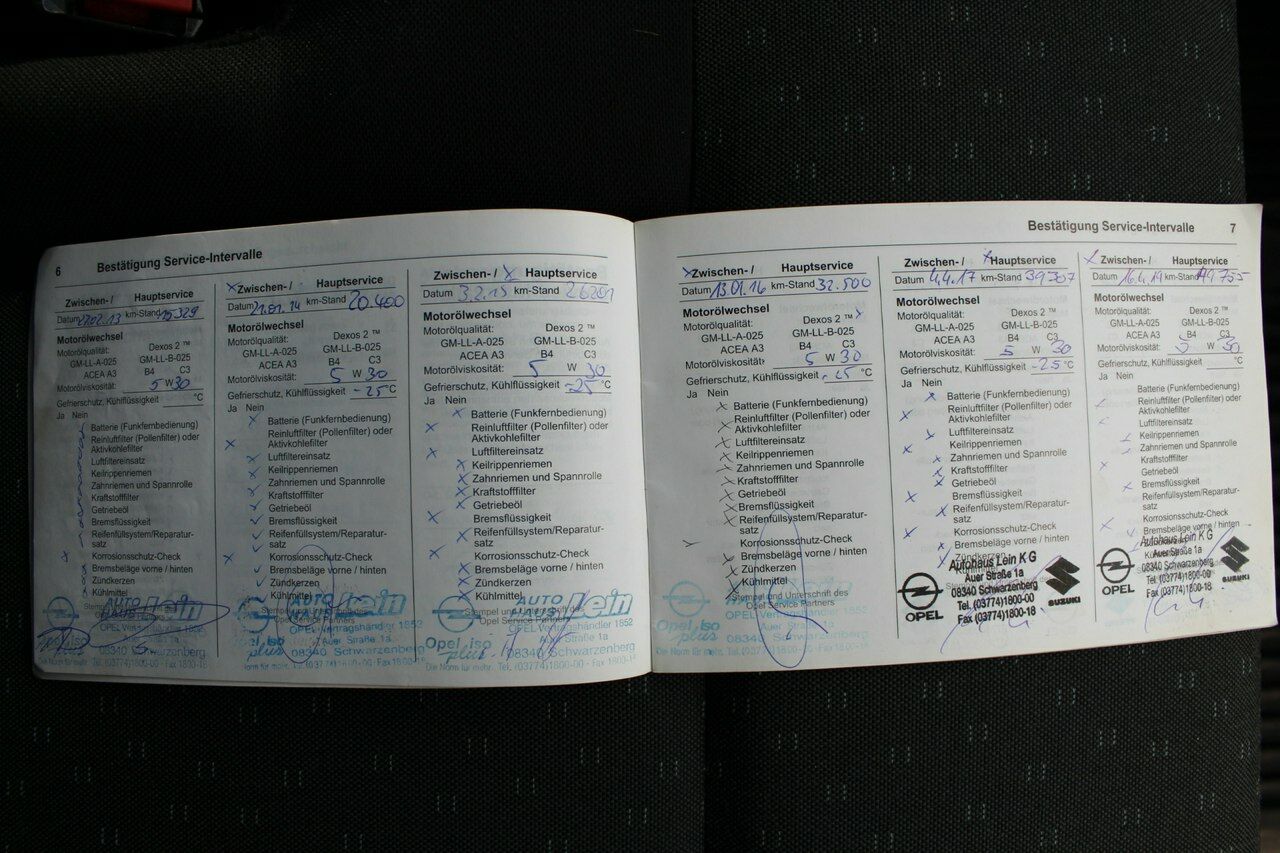 6 Bestätigung Service-Intervalle
Zwischen- / Hauptservice
Datum 07.02.13 km-Stand 15329
Motorölwechsel
Motorölqualität: Dexos 2 ™
GM-LL-A-025 GM-LL-B-025
ACEA A3 B4 C3
Motorölviskosität: 5 W 30
Gefrierschutz, Kühlflüssigkeit °C
Ja Nein
Batterie (Funkfernbedienung)
Reinluftfilter (Pollenfilter) oder
Aktivkohlefilter
Luftfiltereinsatz
Keilrippenriemen
Zahnriemen und Spannrolle
Kraftstofffilter
Getriebeöl
Bremsflüssigkeit
Reifenfüllsystem/Reparatur-
satz
Korrosionsschutz-Check
Bremsbeläge vorne / hinten
Zündkerzen
Kühlmittel
AUTO
Lein
08340 Schwarzenberg
Die Norm für mehr. Tel. (03774)1800-00 - Fax 1800-18
x Zwischen- / Hauptservice
Datum 21.01.14 km-Stand 20.400
Motorölwechsel
Motorölqualität: Dexos 2 ™
GM-LL-A-025 GM-LL-B-025
ACEA A3 B4 C3
Motorölviskosität: 5 W 30
Gefrierschutz, Kühlflüssigkeit -25 °C
Ja Nein
Batterie (Funkfernbedienung)
Reinluftfilter (Pollenfilter) oder
Aktivkohlefilter
Luftfiltereinsatz
Keilrippenriemen
Zahnriemen und Spannrolle
Kraftstofffilter
Getriebeöl
Bremsflüssigkeit
Reifenfüllsystem/Reparatur-
satz
Korrosionsschutz-Check
Bremsbeläge vorne / hinten
Zündkerzen
Kühlmittel
Stempel und Unterschrift des
Opel Service Partners
AUTO
HAUS Lein
OPEL Vertragshändler 1852
Auer Straße 1a
Opel iso plus
08340 Schwarzenberg
Norm für mehr. Tel. (03774)1800-00 - Fax 1800-18
Zwischen- / x Hauptservice
Datum 3.2.15 km-Stand 26201
Motorölwechsel
Motorölqualität: Dexos 2 ™
GM-LL-A-025 GM-LL-B-025
ACEA A3 B4 C3
Motorölviskosität: 5 W 30
Gefrierschutz, Kühlflüssigkeit -25 °C
Ja Nein
Batterie (Funkfernbedienung)
Reinluftfilter (Pollenfilter) oder
Aktivkohlefilter
Luftfiltereinsatz
Keilrippenriemen
Zahnriemen und Spannrolle
Kraftstofffilter
Getriebeöl
Bremsflüssigkeit
Reifenfüllsystem/Reparatur-
satz
Korrosionsschutz-Check
Bremsbeläge vorne / hinten
Zündkerzen
Kühlmittel
Stempel und Unterschrift des
Opel Service Partners
AUTO
HAUS Lein
OPEL Vertragshändler 1852
Auer Straße 1a
Opel iso plus
08340 Schwarzenberg
Die Norm für mehr. Tel. (03774)1800-00 - Fax 1800-18
Bestätigung Service-Intervalle 7
x Zwischen- / Hauptservice
Datum 13.01.16 km-Stand 32.500
Motorölwechsel
Motorölqualität: Dexos 2 ™ x
GM-LL-A-025 GM-LL-B-025
ACEA A3 B4 C3
Motorölviskosität: 5 W 30
Gefrierschutz, Kühlflüssigkeit -25 °C
Ja Nein
Batterie (Funkfernbedienung)
Reinluftfilter (Pollenfilter) oder
Aktivkohlefilter
Luftfiltereinsatz
Keilrippenriemen
Zahnriemen und Spannrolle
Kraftstofffilter
Getriebeöl
Bremsflüssigkeit
Reifenfüllsystem/Reparatur-
satz
Korrosionsschutz-Check
Bremsbeläge vorne / hinten
Zündkerzen
Kühlmittel
Stempel und Unterschrift des
Opel Service Partners
OPEL Vertragshändler 1852
Auer Straße 1a
plus
08340 Schwarzenberg
Die Norm für mehr. Tel. (03774)1800-00 - Fax 1800-18
Zwischen- / x Hauptservice
Datum 4.4.17 km-Stand 39307
Motorölwechsel
Motorölqualität: Dexos 2 ™
GM-LL-A-025 GM-LL-B-025
ACEA A3 B4 C3
Motorölviskosität: 5 W 30
Gefrierschutz, Kühlflüssigkeit -25 °C
Ja Nein
Batterie (Funkfernbedienung)
Reinluftfilter (Pollenfilter) oder
Aktivkohlefilter
Luftfiltereinsatz
Keilrippenriemen
Zahnriemen und Spannrolle
Kraftstofffilter
Getriebeöl
Bremsflüssigkeit
Reifenfüllsystem/Reparatur-
satz
Korrosionsschutz-Check
Bremsbeläge vorne / hinten
Zündkerzen
Autohaus Lein KG
Auer Straße 1a
08340 Schwarzenberg
Tel. (03774)1800-0
Fax (03774)1800-18
OPEL
SUZUKI
x Zwischen- / Hauptservice
Datum 16.4.19 km-Stand 49755
Motorölwechsel
Motorölqualität: Dexos 2 ™
GM-LL-A-025 GM-LL-B-025
ACEA A3 B4 C3
Motorölviskosität: 5 W 30
Gefrierschutz, Kühlflüssigkeit °C
Ja Nein
Batterie (Funkfernbedienung)
Reinluftfilter (Pollenfilter) oder
Aktivkohlefilter
Luftfiltereinsatz
Keilrippenriemen
Zahnriemen und Spannrolle
Kraftstofffilter
Getriebeöl
Bremsflüssigkeit
Reifenfüllsystem/Reparatur-
satz
Korrosionsschutz-Check
Bremsbeläge vorne / hinten
Autohaus Lein KG
Auer Straße 1a
08340 Schwarzenberg
Tel. (03774)1800-0
Fax (03774)1800-18
OPEL
SUZUKI